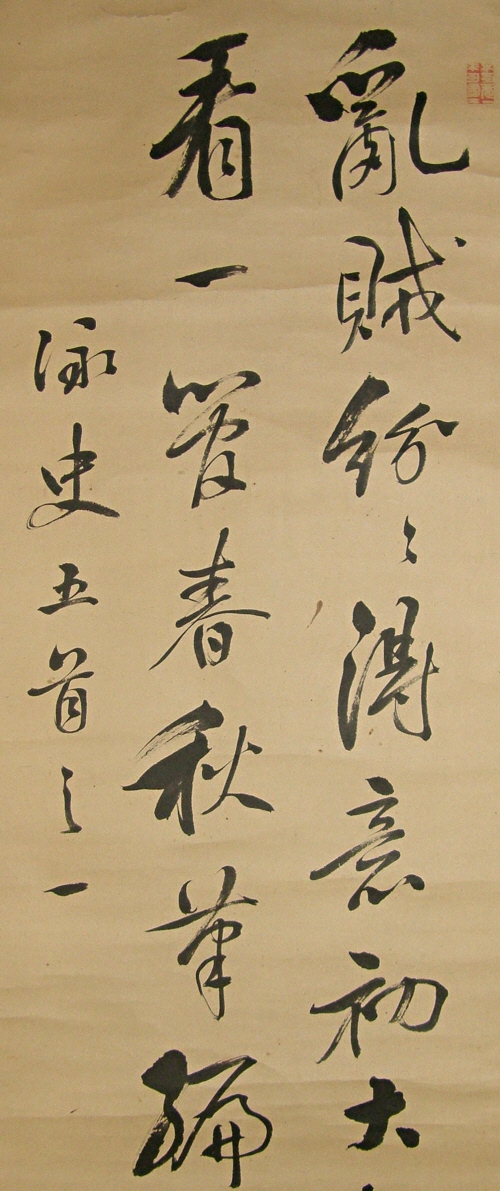 亂賊紛〻得意初大
看一管春秋筆編
詠史五首之一